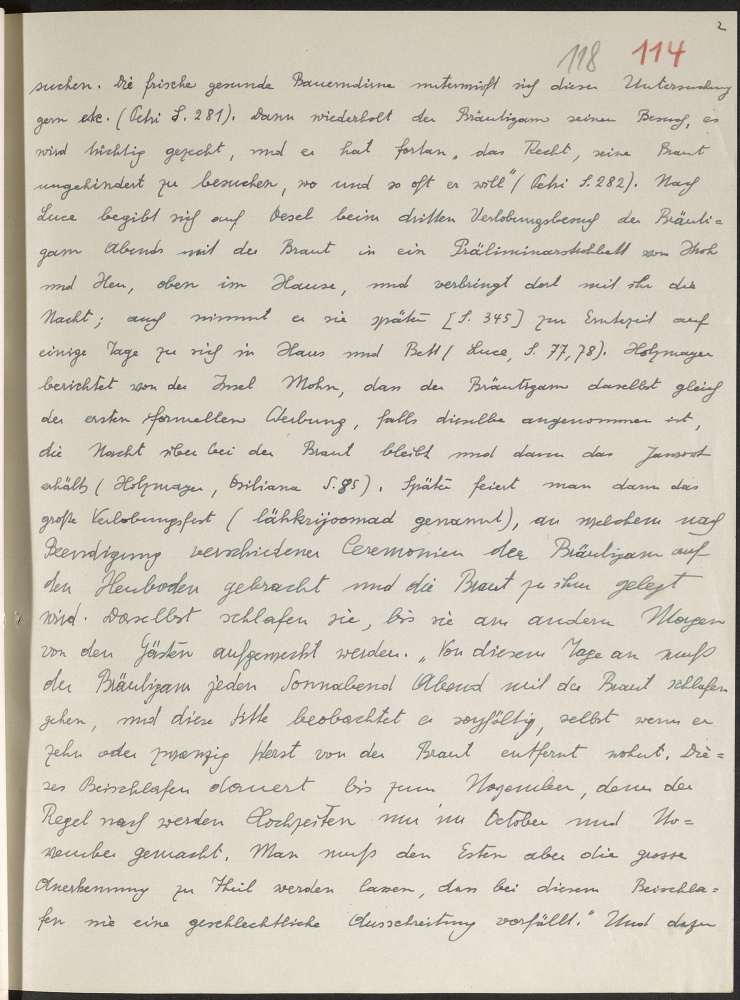 2
118 114
suchen. Die frische gesunde Bauerndirne unterwirft sich dieser Untersuchung
gern etc. (Petri S. 281). Dann wiederholt der Bräutigam seinen Besuch, es
wird tüchtig gezecht, und er hat fortan „das Recht, seine Braut
ungehindert zu besuchen, wo und so oft er will" (Petri S. 282). Nach
Luce begibt sich auf Oesel beim dritten Verlobungsbesuch der Bräuti=
gam Abends mit der Braut in ein Präliminarstrohbett von Stroh
und Heu, oben im Hause, und verbringt dort mit ihr die
Nacht; auch nimmt er sie später [S. 345] zur Erntezeit auf
einige Tage zu sich in Haus und Bett (Luce, S. 77, 78). Holzmayer
berichtet von der Insel Mohn, dass der Bräutigam daselbst gleich
der ersten formellen Werbung, falls dieselbe angenommen ist,
die Nacht über bei der Braut bleibt und dann das
erhält (Holzmayer, Osiliana S. 85). Später feiert man dann das
große Verlobungsfest (lähkrijoomad genannt), an welchem nach
Beendigung verschiedener Ceremonien der Bräutigam auf
den Heuboden gebracht und die Braut zu ihm gelegt
wird. Daselbst schlafen sie, bis sie am andern Morgen
von den Gästen aufgeweckt werden. „Von diesem Tage an muß
der Bräutigam jeden Sonnabend Abend mit der Braut schlafen
gehen, und diese Sitte beobachtet er sorgfältig, selbst wenn er
zehn oder zwanzig Werst von der Braut entfernt wohnt. Die=
ses Beischlafen dauert bis zum November, denn der
Regel nach werden Hochzeiten nur im October und No=
vember gemacht. Man muß den Esten aber die grosse
Anerkennung zu Theil werden lassen, dass bei diesem Beischla=
fen nie eine geschlechtliche Ausschreitung vorfällt." Und